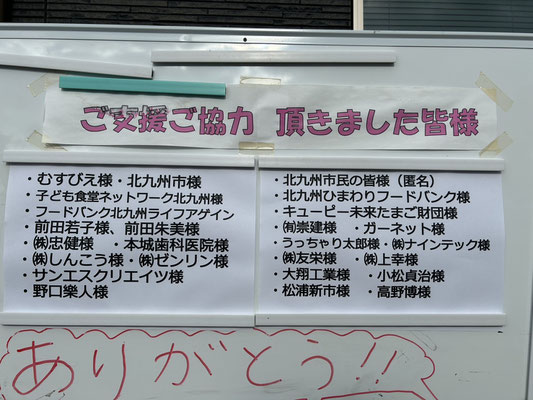 ご支援ご協力 頂きました皆様
・むすびえ様・北九州市様
・子ども食堂ネットワーク北九州様
・フードバンク北九州ライフアゲイン
・前田若子様、前田朱美様
・㈱忠健様　・本城歯科医院様
・㈱しんこう様・㈱ゼンリン様
・サンエスクリエイツ様
・野口樂人様
・北九州市民の皆様（匿名）
・北九州ひまわりフードバンク様
・キューピー未来たまご財団様
・㈲崇建様　・ガーネット様
・うっちゃり太郎様・㈱ナインテック様
・㈱友栄様　・㈱上幸様
・大翔工業様　・小松貞治様
・松浦新市様　・高野博様
ありがとう!!